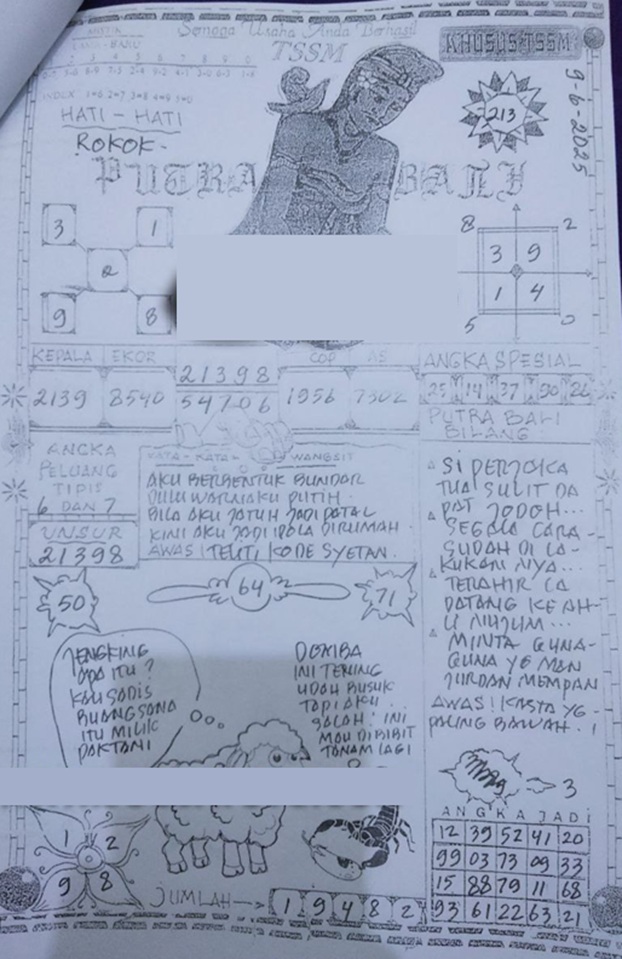 Semoga Usaha Anda Berhasil
TSSM
KHUSUS TSSM
213
9-6-2025
HATI - HATI
ROKOK -
PUTRA BALI
3 1
2
9 8
8 2
3 9
1 4
5 0
KEPALA EKOR
2139 8540
21398
54706
COP AS
1956 7302
ANGKA SPESIAL
25 14 37 90 26
PUTRA BALI
BILANG
ANGKA
PELUANG
TIPIS
6 DAN 7
UNSUR
21398
KATA - KATA WANGSIT
AKU BERBENTUK BUNDAR
DULU WARNAKU PUTIH
BILA AKU JATUH JADI PATAL
KINI AKU JADI BOLA DIRUMAH
AWAS! TELITI KODE SYETAN.
SI PENJOKA
TUA! SULIT DA
PAT JODOH...
SEGALA CARA -
SUDAH DI LA-
KUKAN NYA...
TERAHIR IA
DATANG KE AH-
LI NUJUM...
MINTA GUNA-
GUNA YG MAN
JURDAN MEMPAN
AWAS! KASTA YG -
PALING BAWAH. !
50
64
71
JENGKING
APA ITU?
KAU SADIS
BUANG SANA
ITU MILIK
PAKTANI
DOMBA
INI TERING
UDAH BUSUK
TAPI AKU
SALAH! INI
MAU DIBIBIT
TANAM LAGI
3
ANGKA JADI
12 39 52 41 20
99 03 73 09 33
15 88 79 11 68
93 61 22 63 21
1 2
9 8
JUMLAH -> 1 9 4 8 2